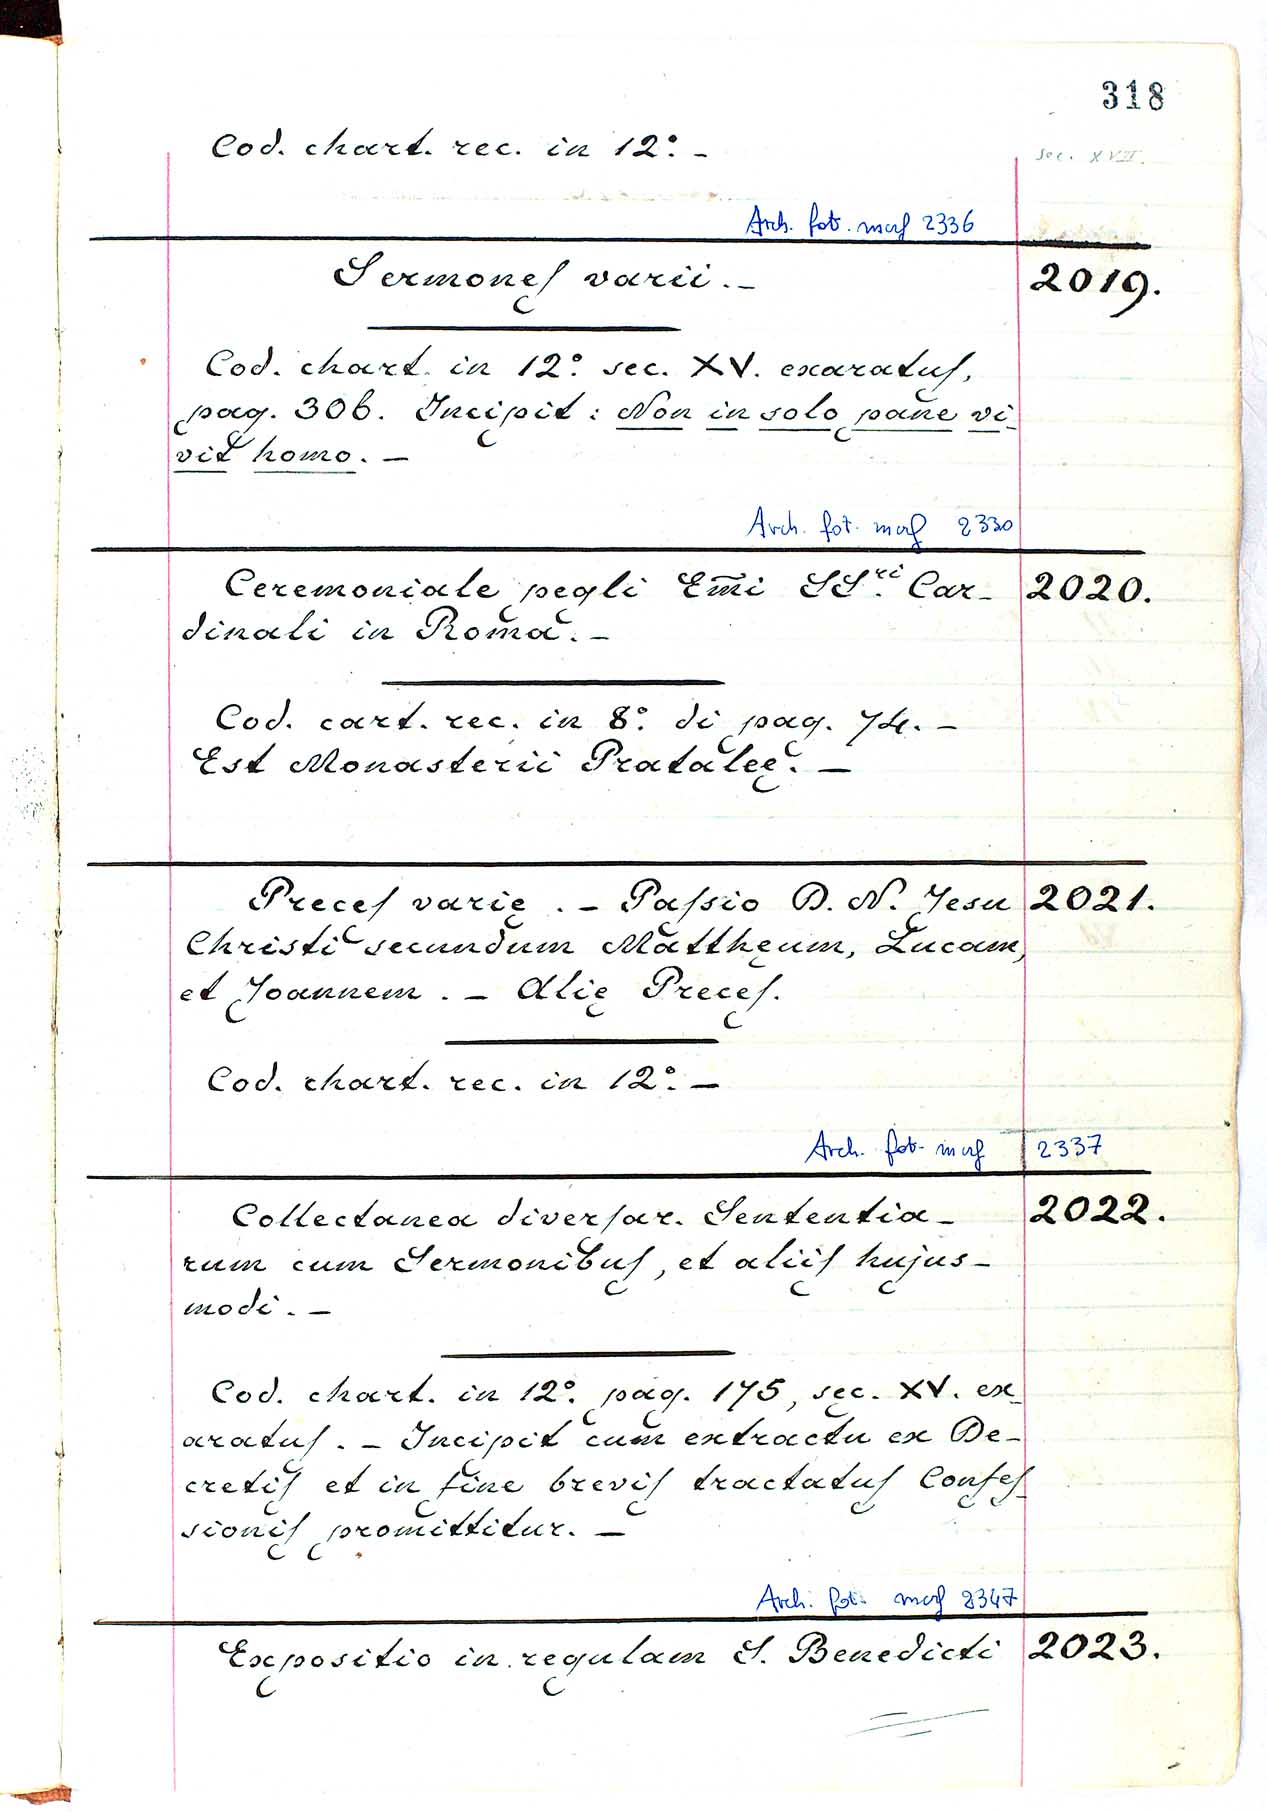 318
Cod. chart. rec. in 12º. -
sec. XVII.
Arch. fot. mcrf 2336
Sermones varii. -
2019.
Cod. chart. in 12º. sec. XV. exaratus,
pag. 306. Incipit: Non in solo pane vi-
vit homo. -
Arch. fot. mcrf 2330
Ceremoniale pegli Em̃i SS.ri Car-
2020.
dinali in Roma. -
Cod. cart. rec. in 8º. di pag. 74. -
Est Monasterii Prataleę. -
Preces varię. - Passio D. N. Jesu
2021.
Christi secundum Matthęum, Lucam,
et Joannem. - Alię Preces.
Cod. chart. rec. in 12º. -
Arch. fot. mcrf 2337
Collectanea diversar. Sententia-
2022.
rum cum Sermonibus, et aliis hujus-
modi. -
Cod. chart. in 12º. pag. 175, sec. XV. ex-
aratus. - Incipit cum extractu ex De-
cretis et in fine brevis tractatus Confes-
sionis promittitur. -
Arch. fot. mcrf 2347
Expositio in regulam S. Benedicti
2023.